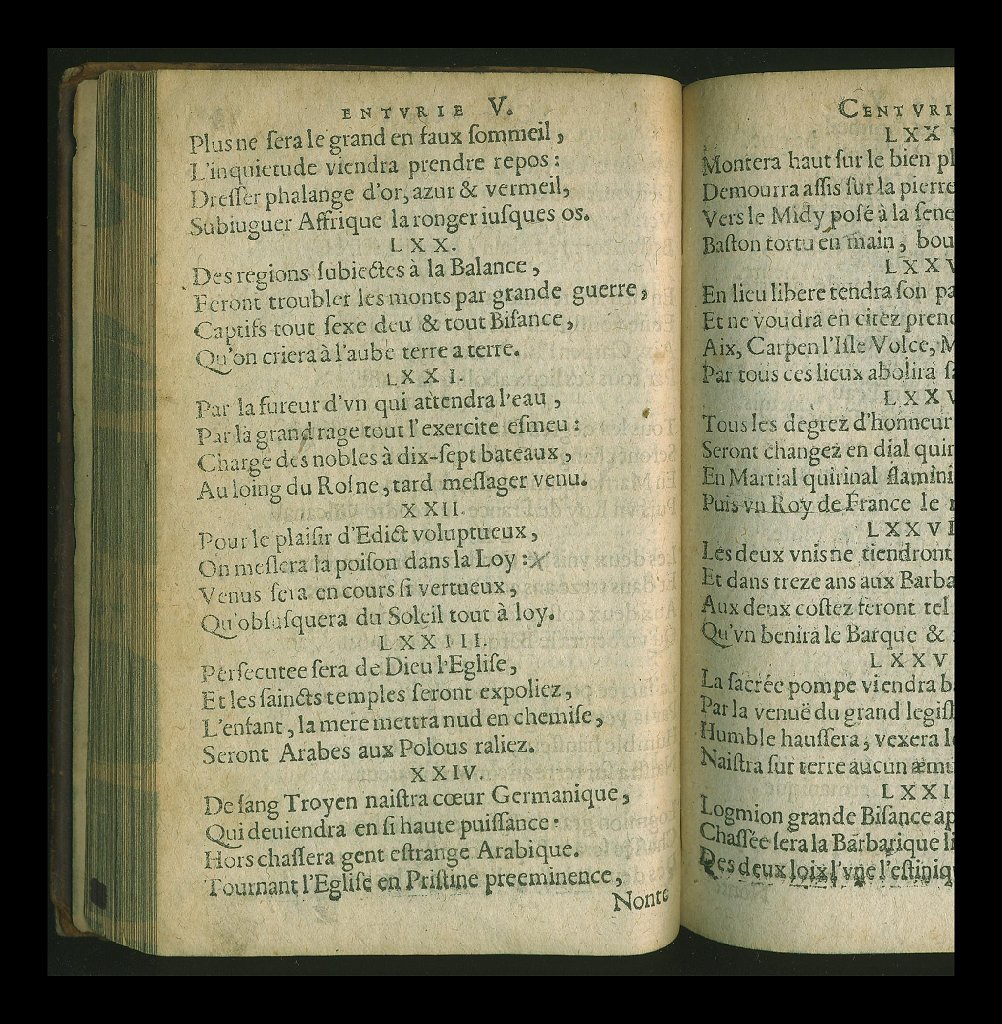 ENTVRIE V.
Plus ne ſera le grand en faux ſommeil,
L'inquietude viendra prendre repos:
Dreſſer phalange d'or, azur & vermeil,
Subiuguer Affrique la ronger iuſques os.
LXX.
Des regions ſubiectes à la Balance,
Feront troubler les monts par grande guerre,
Captifs tout ſexe deu & tout Biſance,
Qu'on criera à l'aube terre a terre.
LXXI.
Par la fureur d'vn qui attendra l'eau,
Par la grand rage tout l'exercite eſmeu:
Charge des nobles à dix-ſept bateaux,
Au loing du Roſne, tard meſſager venu.
XXII.
Pour le plaiſir d'Edict voluptueux,
On meſlera la poiſon dans la Loy:
Venus ſera en cours ſi vertueux,
Qu'obfuſquera du Soleil tout à loy.
LXXIII.
Perſecutee ſera de Dieu l'Egliſe,
Et les ſaincts temples ſeront expoliez,
L'enfant, la mere mettra nud en chemiſe,
Seront Arabes aux Polous raliez.
XXIV.
De ſang Troyen naiſtra cœur Germanique,
Qui deuiendra en ſi haute puiſſance:
Hors chaſſera gent eſtrange Arabique.
Tournant l'Egliſe en Priſtine preeminence,
Nonte
CENTVRI
LXXV
Montera haut ſur le bien pl
Demourra aſſis ſur la pierre
Vers le Midy poſé à la ſene
Baſton tortu en main, bou
LXXV
En lieu libere tendra ſon pa
Et ne voudra en citez prend
Aix, Carpen l'Iſle Volce, M
Par tous ces lieux abolira ſa
LXXV
Tous les degrez d'honneur
Seront changez en dial quir
En Martial quirinal flamini
Puis vn Roy de France le
LXXVI
Les deux vnis ne tiendront
Et dans treze ans aux Barba
Aux deux coſtez feront tel
Qu'vn benira le Barque &
LXXV
La ſacrée pompe viendra ba
Par la venuë du grand legiſl
Humble hauſſera, vexera le
Naiſtra ſur terre aucun æmu
LXXI
Logmion grande Biſance ap
Chaſſée ſera la Barbarique li
Des deux loix l'vne l'eſtiniq